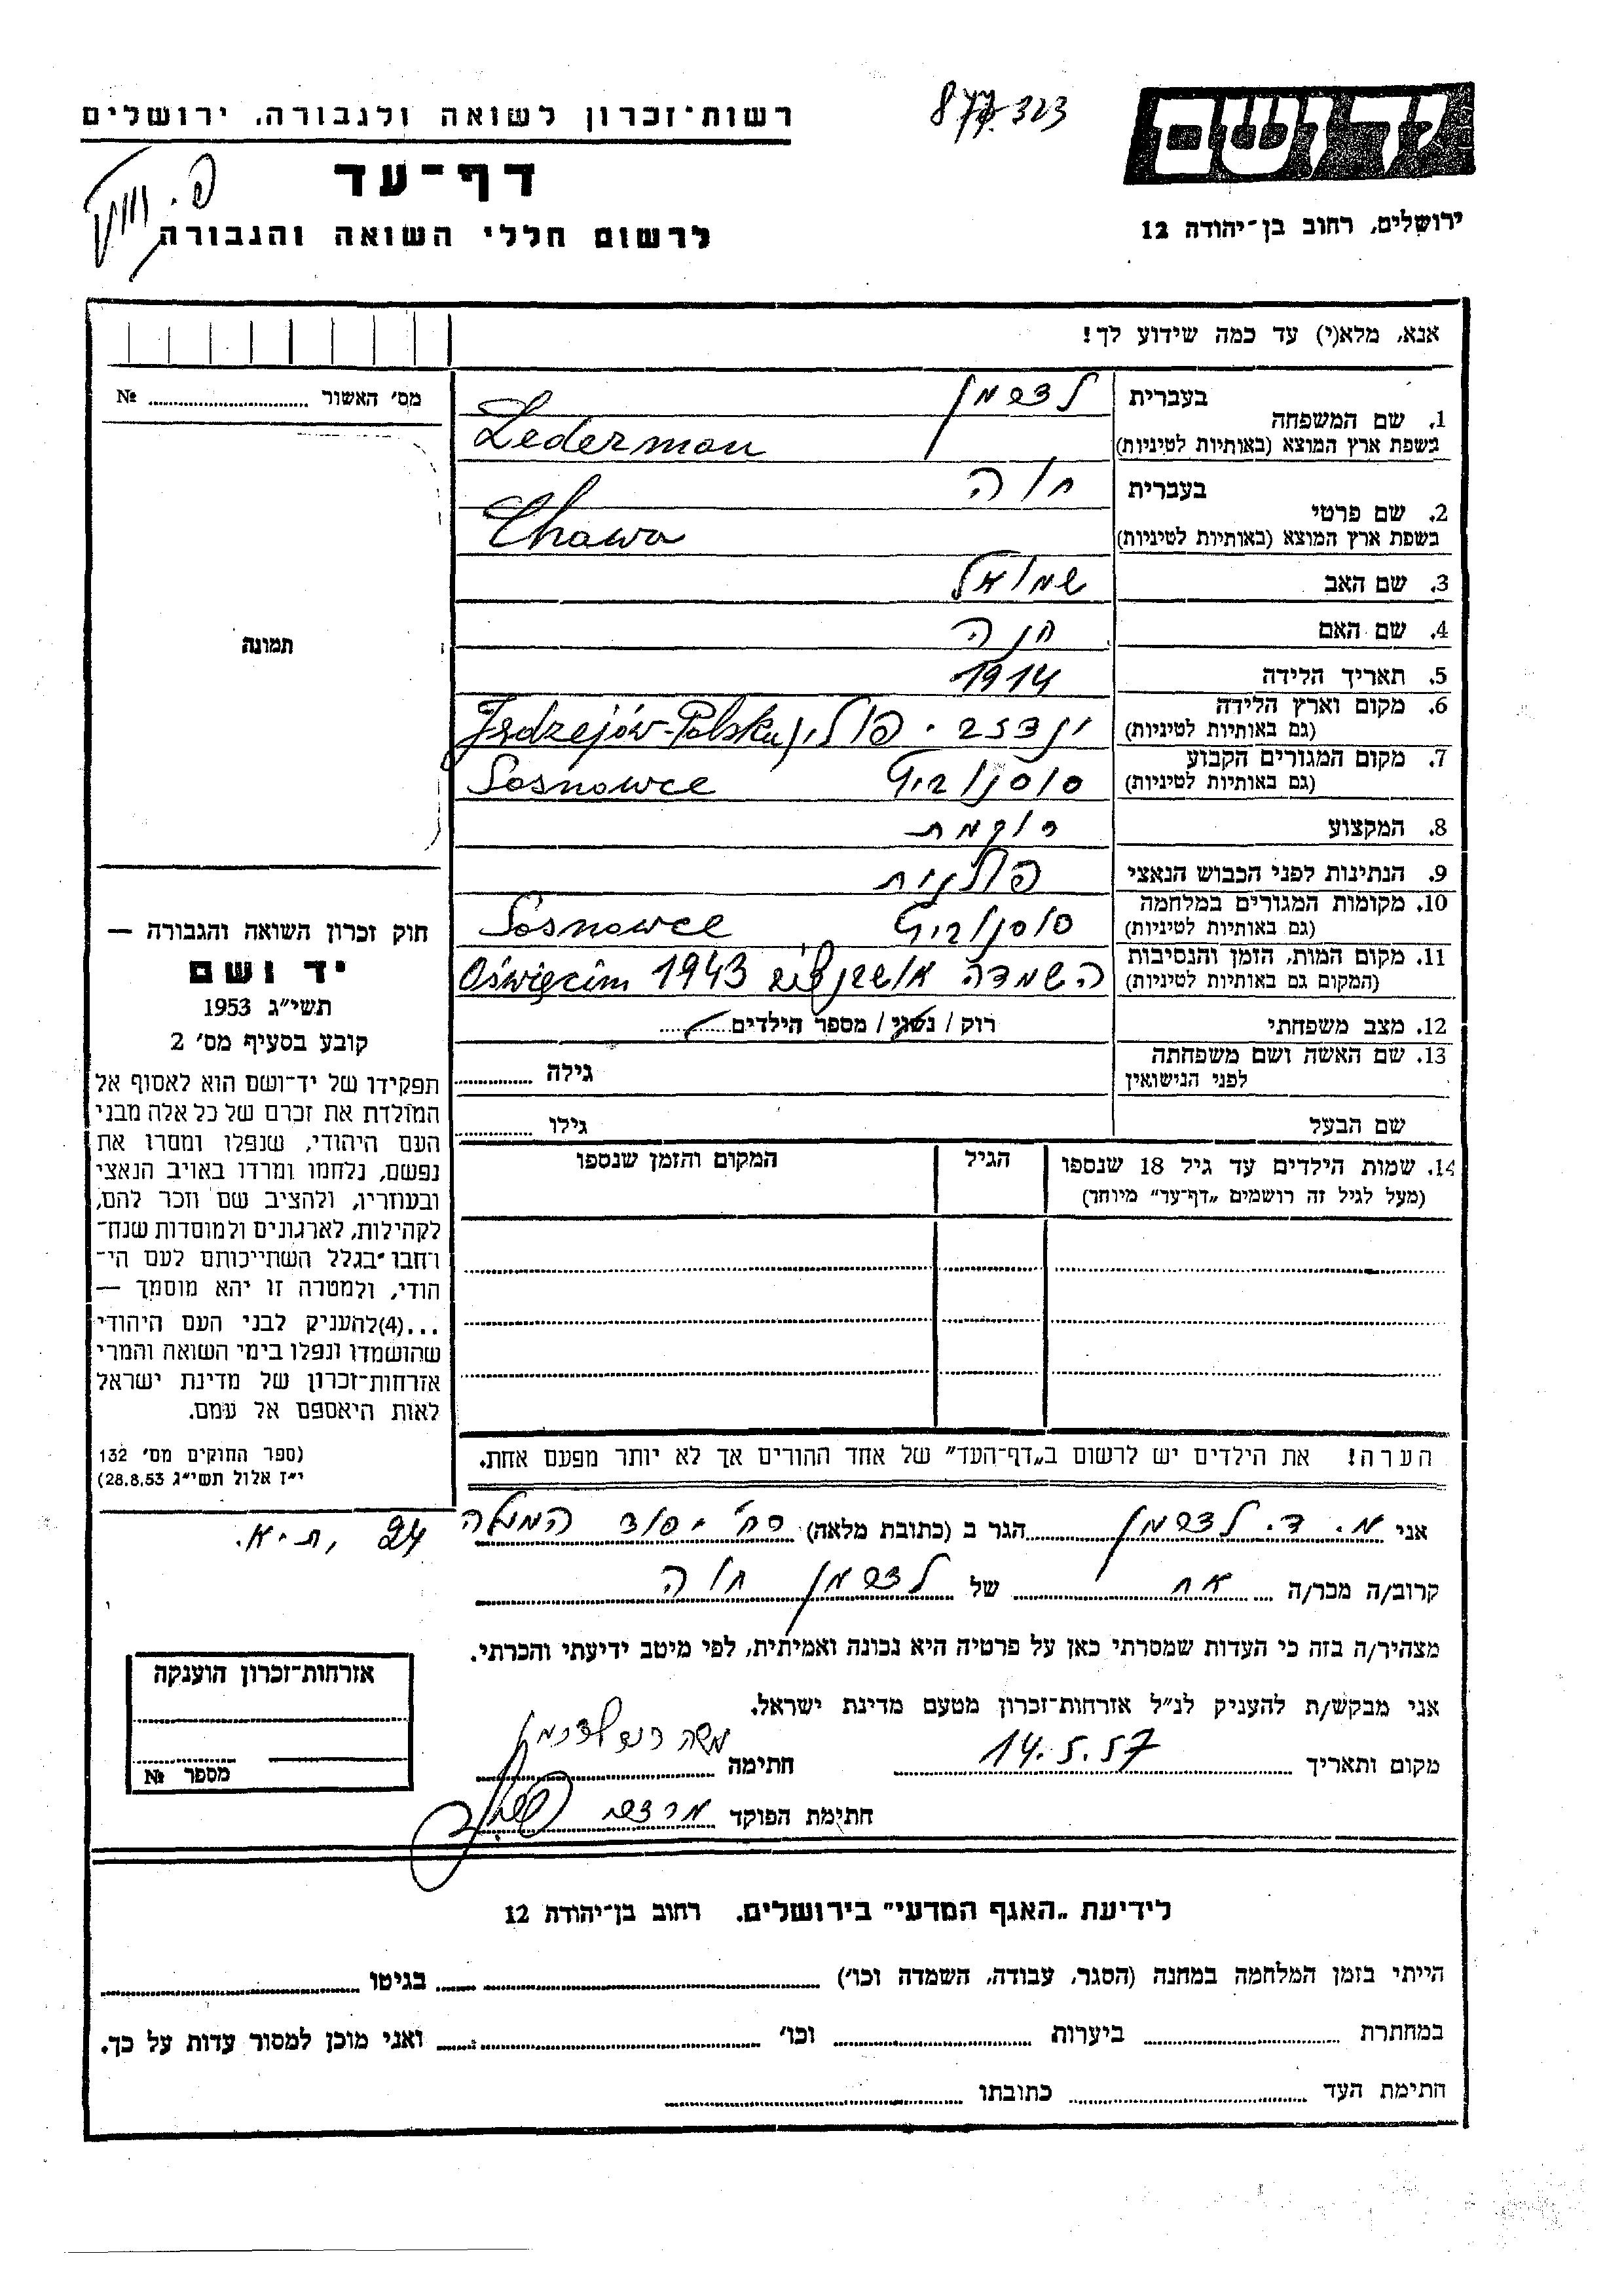 רשות־זכרון לשואה ולגבורה, ירושלים
ידושם
דף־עד
לרשום חללי השואה והגבורה
ירושלים, רחוב בן־יהודה 12
אנא, מלא(י) עד כמה שידוע לך!
מס׳ האשור № 
תמונה
1. שם המשפחה בעברית לדרמן
בשפת ארץ המוצא (באותיות לטיניות) Lederman
2. שם פרטי בעברית חוה
בשפת ארץ המוצא (באותיות לטיניות) Chawa
3. שם האב שמואל
4. שם האם חנה
5. תאריך הלידה 1914
6. מקום וארץ הלידה (גם באותיות לטיניות) פולין Jędzejów-Polska
7. מקום המגורים הקבוע (גם באותיות לטיניות) סוסנוביץ Sosnowce
8. המקצוע רוקמת
9. הנתינות לפני הכבוש הנאצי פולנית
10. מקומות המגורים במלחמה (גם באותיות לטיניות) סוסנוביץ Sosnowce
11. מקום המות, הזמן והנסיבות (המקום גם באותיות לטיניות) השמדה 1943 Oświęcim
12. מצב משפחתי רוק / נשוי / מספר הילדים
13. שם האשה ושם משפחתה לפני הנישואין גילה
שם הבעל גילו
14. שמות הילדים עד גיל 18 שנספו (מעל לגיל זה רושמים „דף־עד״ מיוחד) הגיל המקום והזמן שנספו
חוק זכרון השואה והגבורה —
יד ושם
תשי״ג 1953
קובע בסעיף מס׳ 2
תפקידו של יד־ושם הוא לאסוף אל
המולדת את זכרם של כל אלה מבני
העם היהודי, שנפלו ומסרו את
נפשם, נלחמו ומרדו באויב הנאצי
ובעוזריו, ולהציב שם וזכר להם,
לקהילות, לארגונים ולמוסדות שנח־
רחבו בגלל השתייכותם לעם הי־
הודי, ולמטרה זו יהא מוסמך —
...(4)להעניק לבני העם היהודי
שהושמדו ונפלו בימי השואה והמרי
אזרחות־זכרון של מדינת ישראל
לאות היאספם אל עמם.
(ספר החוקים מס׳ 132
י״ז אלול תשי״ג 28.8.53)
הערה! את הילדים יש לרשום ב„דף־העד״ של אחד ההורים אך לא יותר מפעם אחת.
אני מ. ד. לדרמן הגר ב (כתובת מלאה) רח׳ יסוד המעלה 24, ת-א.
קרוב/ה מכר/ה אח של לדרמן חוה
מצהיר/ה בזה כי העדות שמסרתי כאן על פרטיה היא נכונה ואמיתית, לפי מיטב ידיעתי והכרתי.
אני מבקש/ת להעניק לנ״ל אזרחות־זכרון מטעם מדינת ישראל.
מקום ותאריך 14.5.57 חתימה משה לדרמן
חתימת הפוקד
אזרחות־זכרון הוענקה
מספר №
לידיעת „האגף המדעי״ בירושלים. רחוב בן־יהודה 12
הייתי בזמן המלחמה במחנה (הסגר, עבודה, השמדה וכו׳) בגיטו
במחתרת ביערות וכו׳ ואני מוכן למסור עדות על כך.
חתימת העד כתובתו